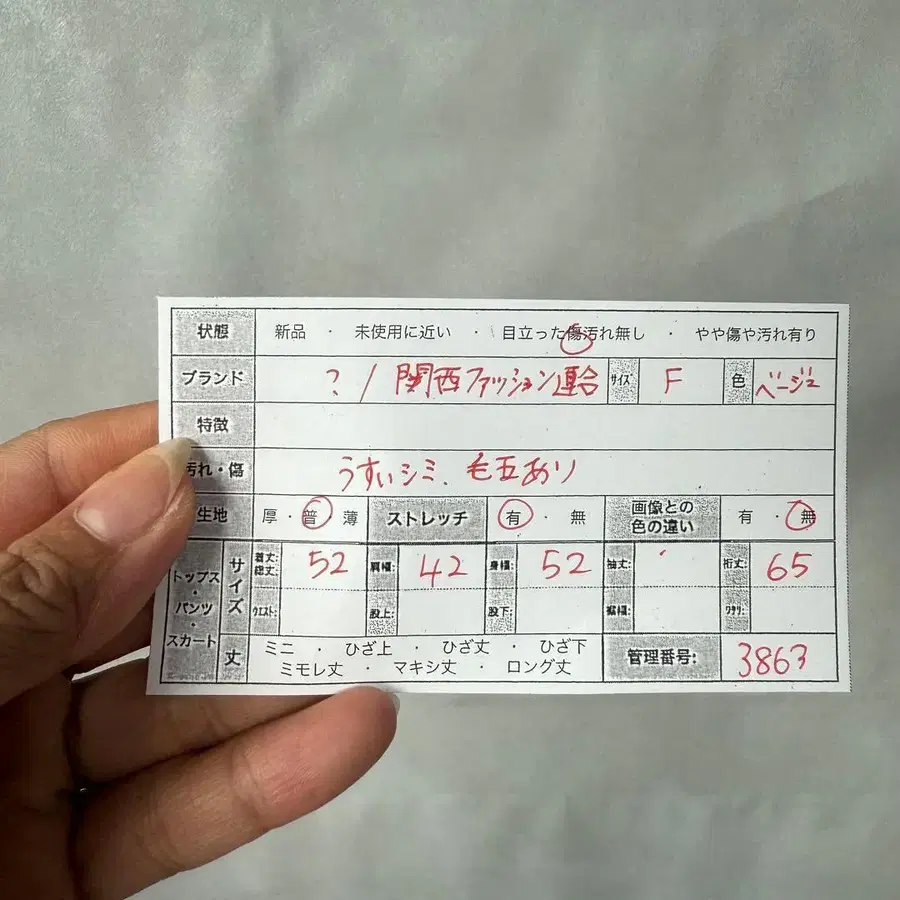 状態 新品 ・ 未使用に近い ・ 目立った傷汚れ無し ・ やや傷や汚れ有り
ブランド ? / 関西ファッション連合 サイズ F 色 ベージュ
特徴
汚れ・傷 うすいシミ、毛玉あり
生地 厚・普・薄 ストレッチ 有 ・ 無 画像との色の違い 有 ・ 無
トップス・パンツ・スカート サイズ 着丈:総丈: 52 肩幅: 42 身幅: 52 袖丈: 裄丈: 65
ウエスト: 股上: 股下: 裾幅: ワタリ:
丈 ミニ ・ ひざ上 ・ ひざ丈 ・ ひざ下
ミモレ丈 ・ マキシ丈 ・ ロング丈 管理番号: 3863